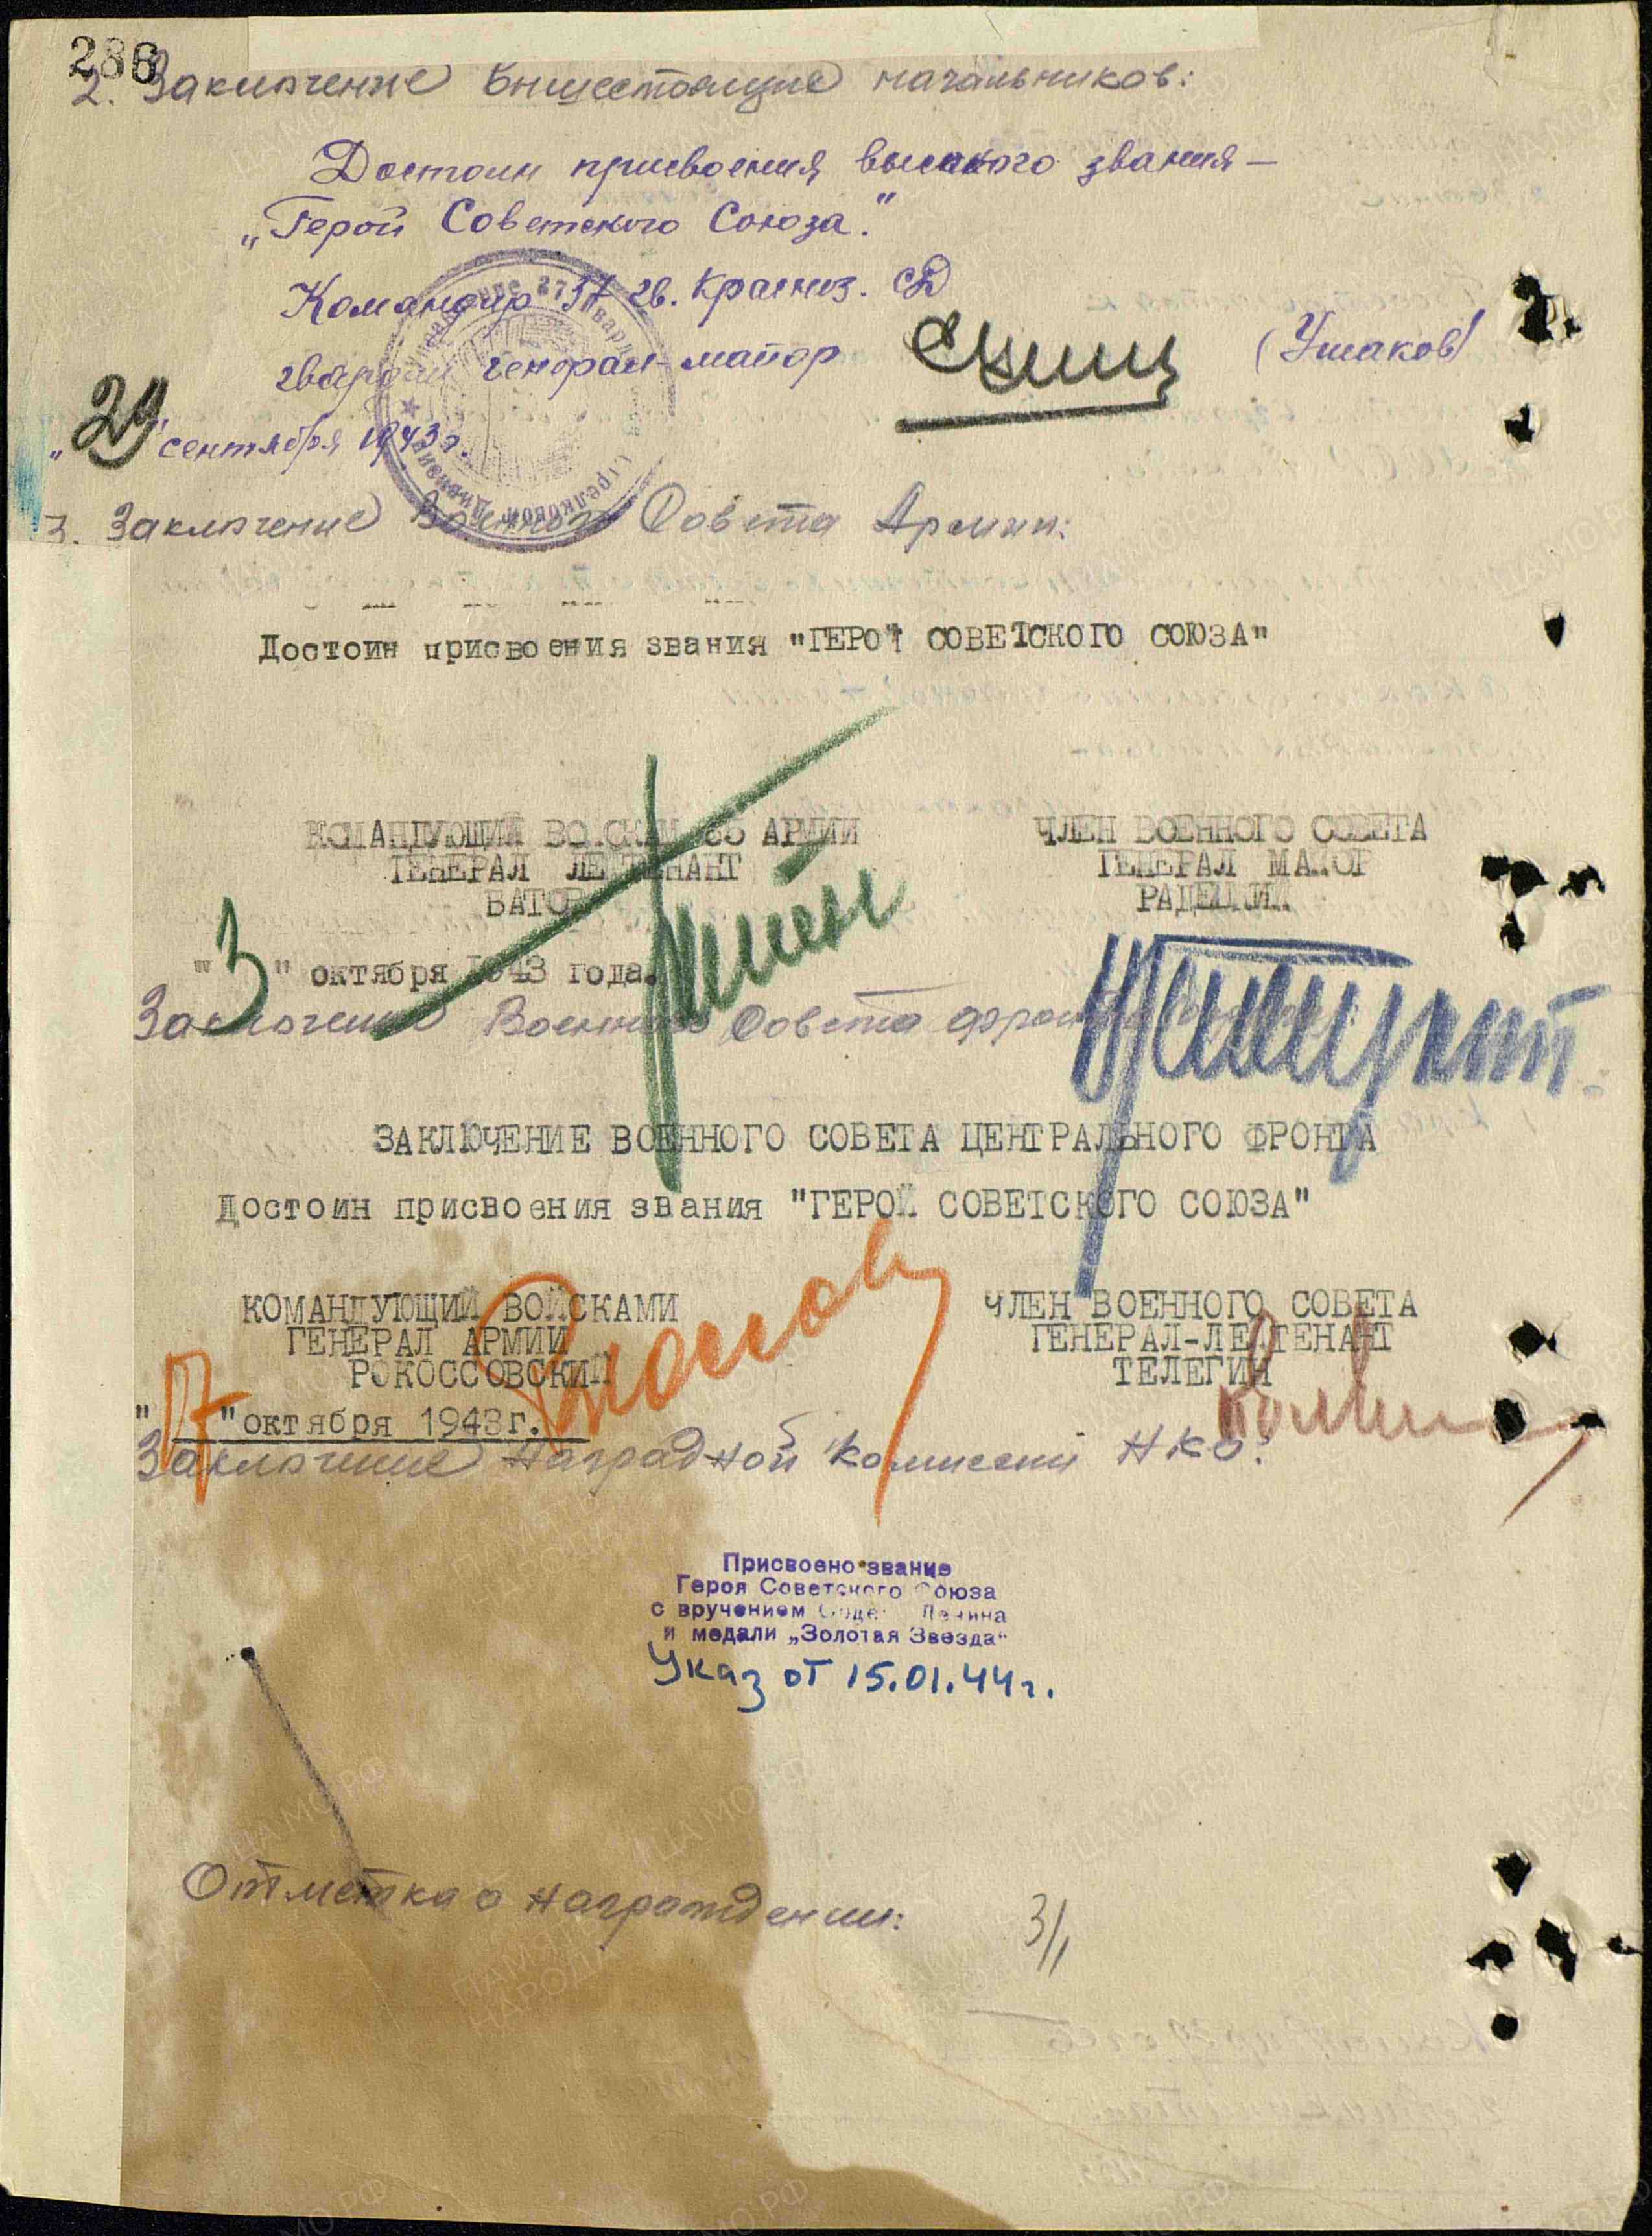 286
2. Заключение вышестоящие начальников:
Достоин присвоения высокого звания —
„Герой Советского Союза."
Командир 37 гв. Краснз. СД
гвардии генерал-майор (Ушаков)
„29" сентября 1943 г.
3. Заключение Военного Совета Армии:
Достоин присвоения звания "ГЕРОЙ СОВЕТСКОГО СОЮЗА"
КОМАНДУЮЩИЙ ВОЙСКАМИ 65 АРМИИ
ГЕНЕРАЛ ЛЕЙТЕНАНТ
БАТОВ
ЧЛЕН ВОЕННОГО СОВЕТА
ГЕНЕРАЛ МАЙОР
РАДЕЦКИЙ
"3" октября 1943 года.
Заключение Военного Совета фронта
ЗАКЛЮЧЕНИЕ ВОЕННОГО СОВЕТА ЦЕНТРАЛЬНОГО ФРОНТА
Достоин присвоения звания "ГЕРОЙ СОВЕТСКОГО СОЮЗА"
КОМАНДУЮЩИЙ ВОЙСКАМИ
ГЕНЕРАЛ АРМИИ
РОКОССОВСКИЙ
ЧЛЕН ВОЕННОГО СОВЕТА
ГЕНЕРАЛ-ЛЕЙТЕНАНТ
ТЕЛЕГИН
"17" октября 1943г.
Заключение Наградной комиссии НКО:
Присвоено звание
Героя Советского Союза
с вручением Ордена Ленина
и медали „Золотая Звезда"
Указ от 15.01.44г.
Отметка о награждении:
3/1